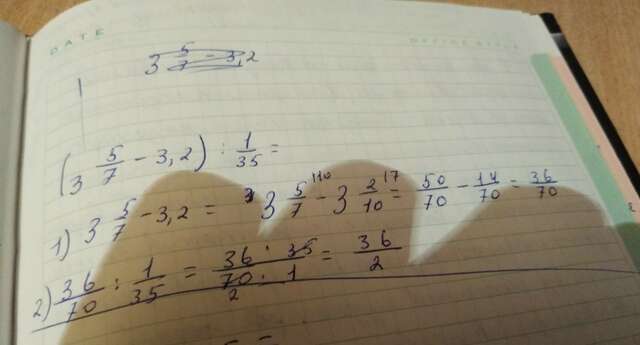 DATE
3 5/7 - 3,2
(3 5/7 - 3,2) : 1/35 =
1) 3 5/7 - 3,2 = 3 5/7 |10 - 3 2/10 |7 = 50/70 - 14/70 = 36/70
2) 36/70 : 1/35 = 36 : 35/70 : 1 2 = 36/2